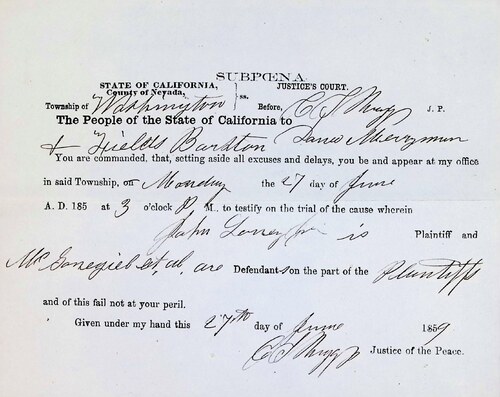 SUBPŒNA
STATE OF CALIFORNIA, JUSTICE'S COURT.
County of Nevada, ss.
Township of Washington Before, J. P.
The People of the State of California to
& Fields Barston Merryman
You are commanded, that, setting aside all excuses and delays, you be and appear at my office
in said Township, on Monday the 27 day of June
A. D. 185 at 3 o'clock P M., to testify on the trial of the cause wherein
John is Plaintiff and
et, al, are Defendants on the part of the Plaintiffs
and of this fail not at your peril.
Given under my hand this 27th day of June 1859
Justice of the Peace.